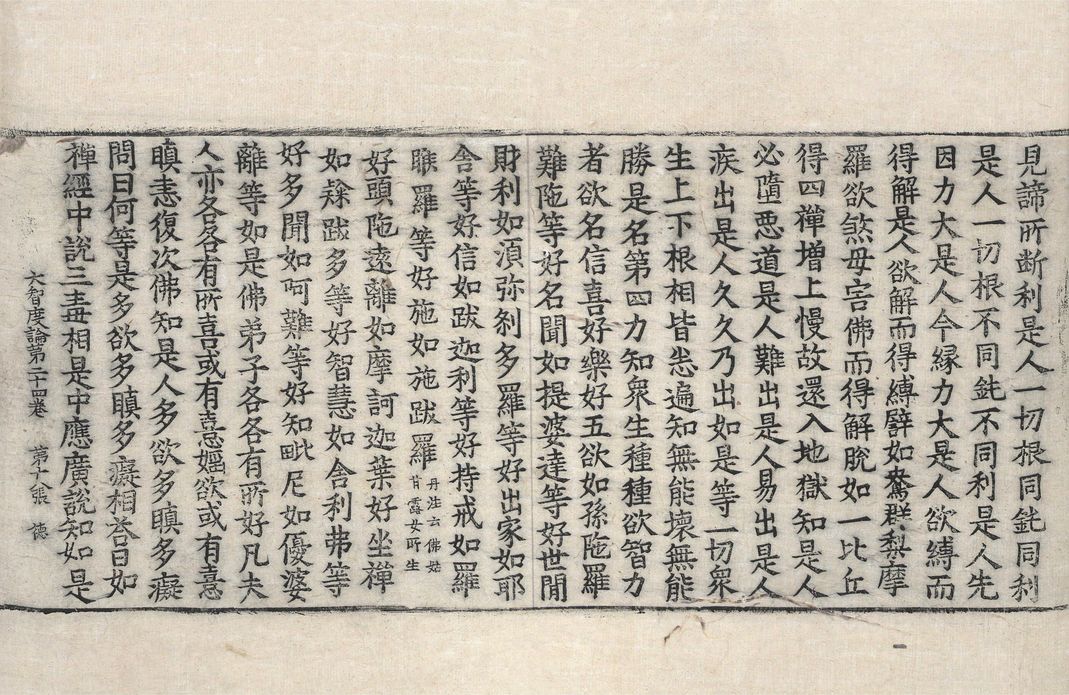 見諦所断利是人一切根同鈍同利
是人一切根不同鈍不同利是人先
因力大是人今緣力大是人欲縛而
得解是人欲解而得縛譬如鴦群梨摩
羅欲煞母害佛而得解脫如一比丘
得四禪增上慢故還入地獄知是人
必墮惡道是人難出是人易出是人
疾出是人久久乃出如是等一切衆
生上下根相皆悉遍知無能壞無能
勝是名第四力知衆生種種欲智力
者欲名信喜好樂好五欲如孫陁羅
難陁等好名聞如提婆達等好世間
財利如湏弥刹多羅等好出家如耶
舍等好信如跋迦利等好持戒如羅
睺羅等好施如施跋羅丹注云佛姑甘露女所生
好頭陁遠離如摩訶迦葉好坐禪
如隸跋多等好智慧如舍利弗等
好多聞如阿難等好知毗尼如優婆
離等如是佛弟子各各有所好凡夫
人亦各各有所喜或有憙婬欲或有憙
瞋恚復次佛知是人多欲多瞋多癡
問曰何等是多欲多瞋多癡相答曰如
禪經中說三毒相是中應廣說知如是
大智度論第二十四卷 第十張 德